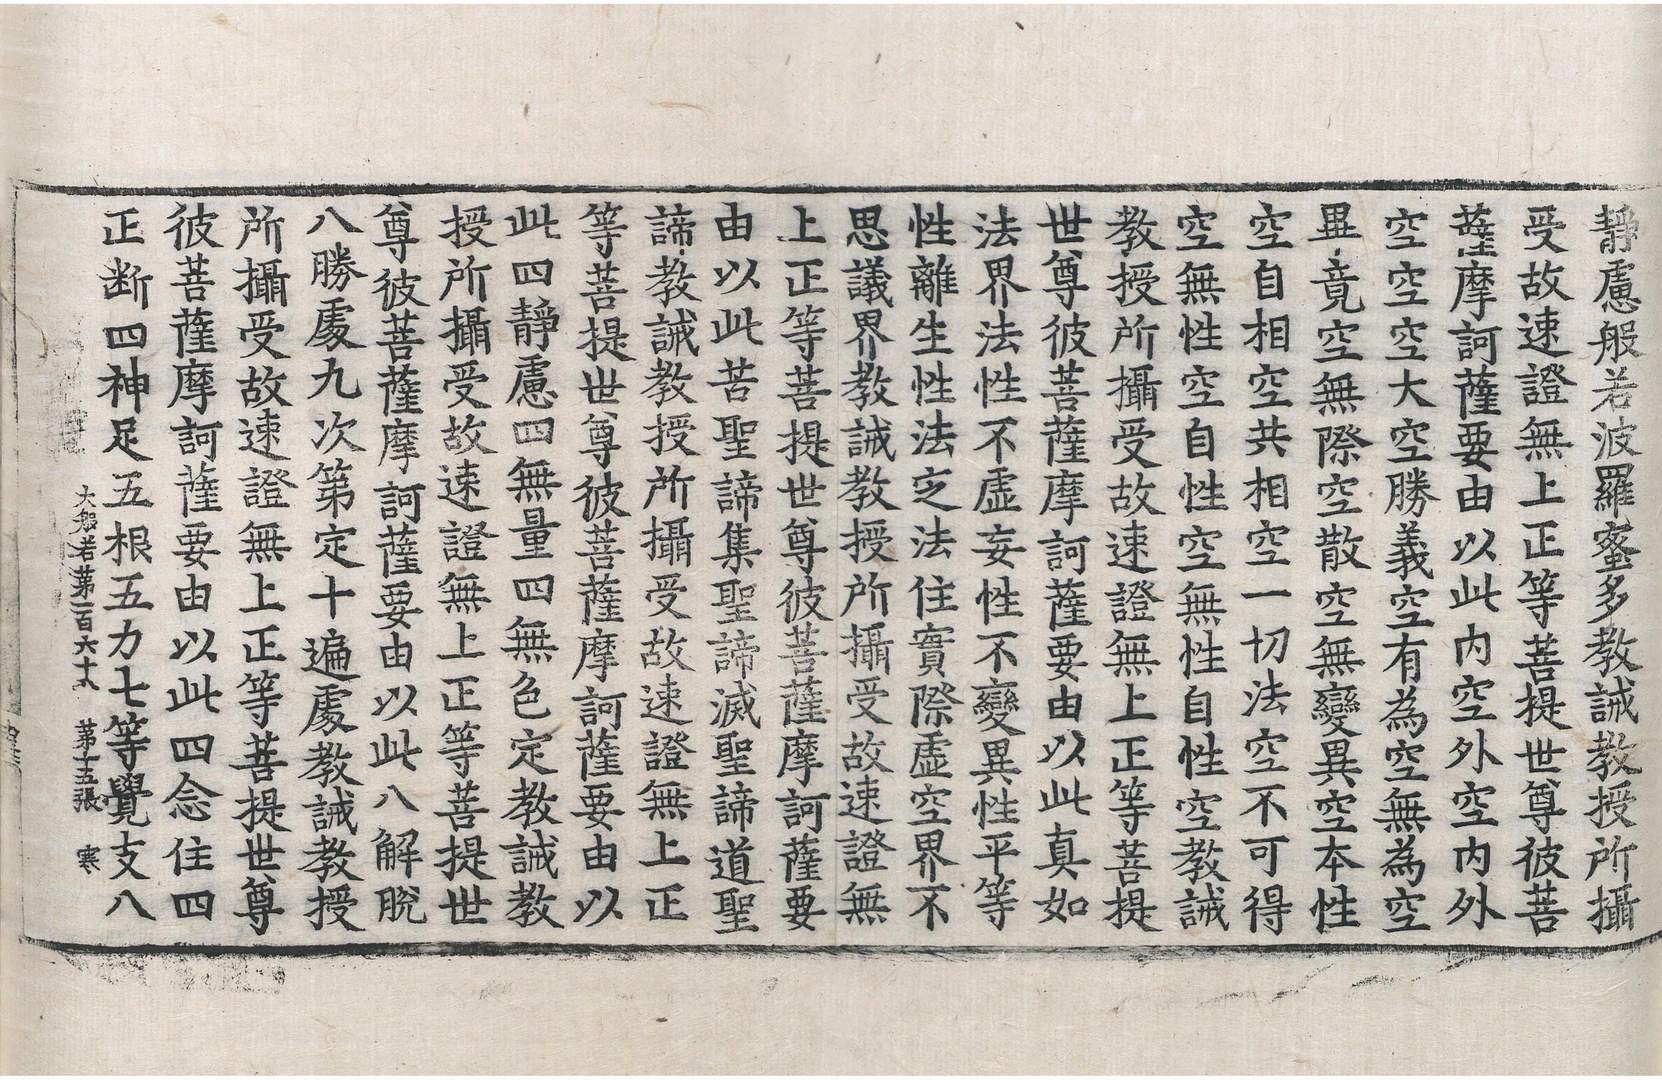 靜慮般若波羅蜜多教誡教授所攝
受故速證無上正等菩提世尊彼菩
薩摩訶薩要由以此内空外空内外
空空空大空勝義空有為空無為空
畢竟空無際空散空無變異空本性
空自相空共相空一切法空不可得
空無性空自性空無性自性空教誡
教授所攝受故速證無上正等菩提
世尊彼菩薩摩訶薩要由以此真如
法界法性不虛妄性不變異性平等
性離生性法㝎法住實際虛空界不
思議界教誡教授所攝受故速證無
上正等菩提世尊彼菩薩摩訶薩要
由以此苦聖諦集聖諦滅聖諦道聖
諦教誡教授所攝受故速證無上正
等菩提世尊彼菩薩摩訶薩要由以
此四靜慮四無量四無色定教誡教
授所攝受故速證無上正等菩提世
尊彼菩薩摩訶薩要由以此八解脫
八勝處九次第定十遍處教誡教授
所攝受故速證無上正等菩提世尊
彼菩薩摩訶薩要由以此四念住四
正断四神足五根五力七等覺支八
大般若第一百六十八 第十五張 寒